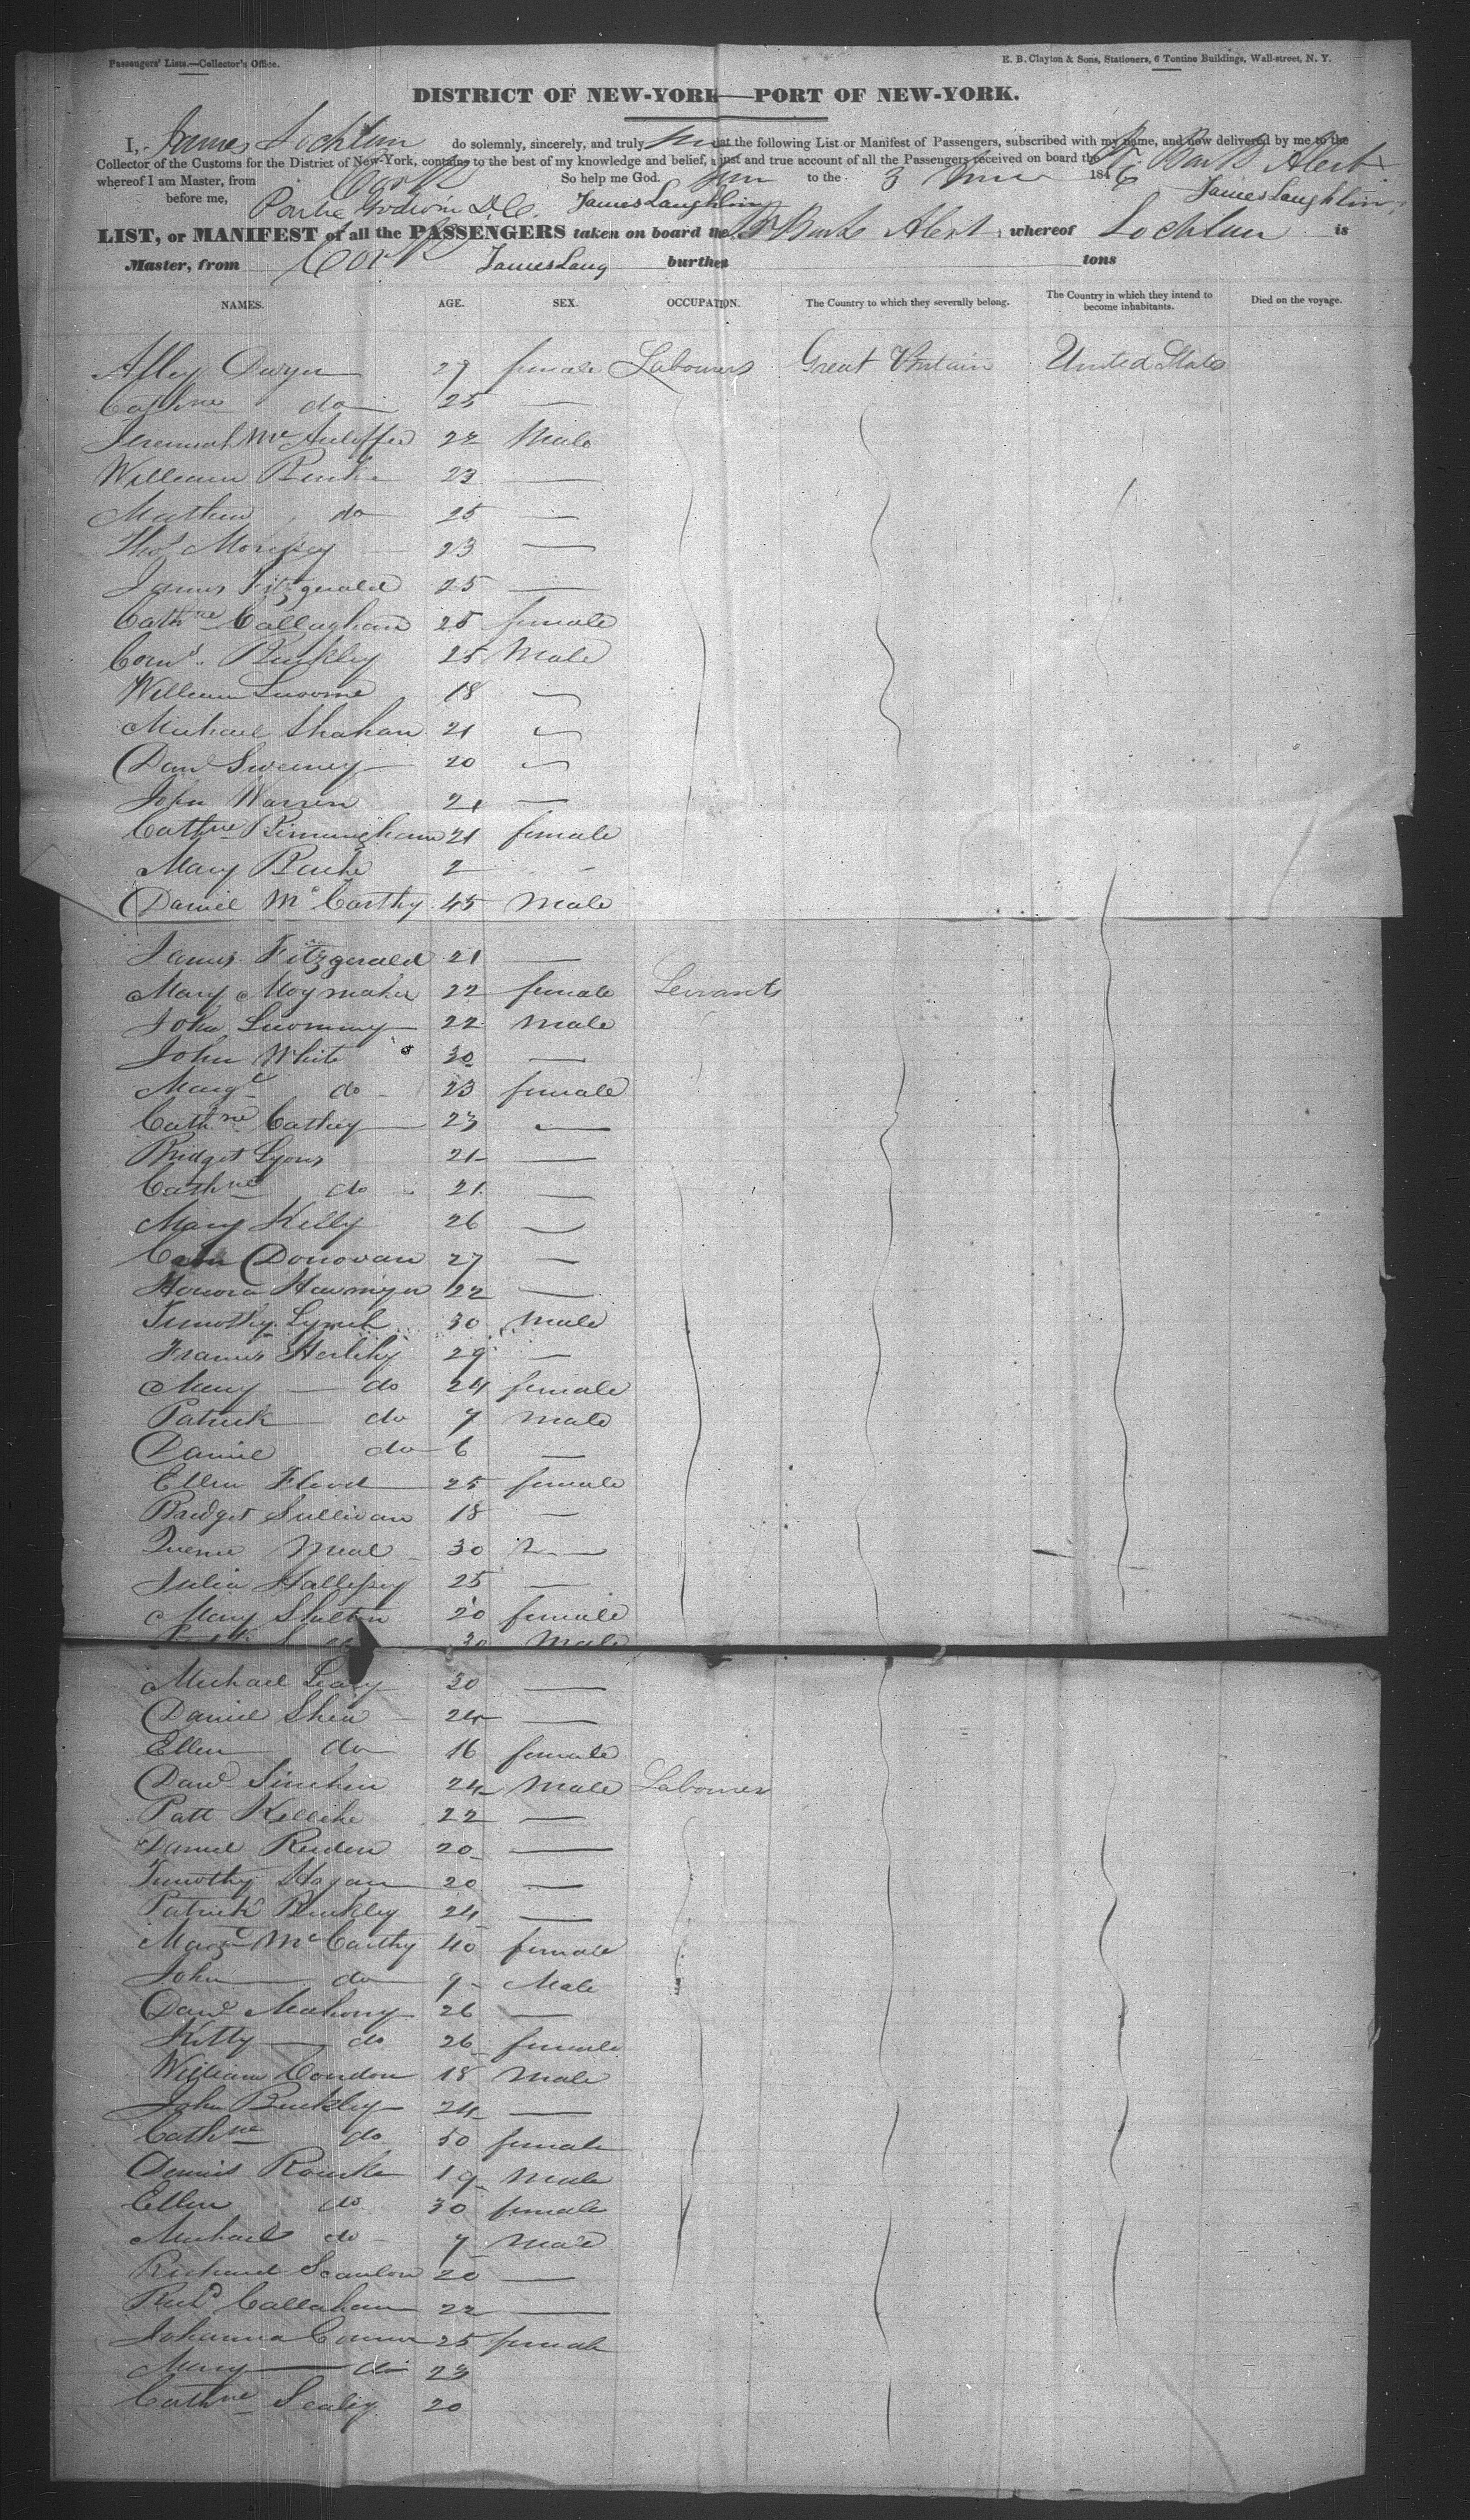 Passengers' Lists.—Collector's Office.
E. B. Clayton & Sons, Stationers, 6 Tontine Buildings, Wall-street, N. Y.
DISTRICT OF NEW-YORK—PORT OF NEW-YORK.
I, James Lochlan do solemnly, sincerely, and truly that the following List or Manifest of Passengers, subscribed with my name, and now delivered by me to the
Collector of the Customs for the District of New-York, contains to the best of my knowledge and belief, a just and true account of all the Passengers received on board the Br Bark Alert
whereof I am Master, from Cork So help me God. to the 3 June 1846 James Laughlin
before me, James Laughlin
LIST, or MANIFEST of all the PASSENGERS taken on board the Br Bark Alert whereof Lochlan is
Master, from Cork James Laug burthen tons
NAMES. AGE. SEX. OCCUPATION. The Country to which they severally belong. The Country in which they intend to become inhabitants. Died on the voyage.
Dwyer 27 female Labourers Great Britain United States
Cathne do 25 —
Jeremiah 22 Male
William Burke 23 —
Mathew do 25 —
Thos Morissey 23 —
James Fitzgerald 25 —
Cathne Callaghan 25 female
Corns Buckley 25 Male
William 18 —
Michael Shahan 21 —
Danl Sweeney 20 —
John Warren 21 —
Cathne Birmingham 21 female
Mary Burke 2 -
Daniel McCarthy 45 Male
James Fitzgerald 21 —
Mary 22 female Servants
John 22 male
John White 30 —
Margt do 23 female
Cathne Cathey 23 —
Bridget Lyons 21 —
Cathne do 21 —
Mary Kelly 26 —
Donovan 27 —
Honora 22 —
Timothy Lynch 30 Male
Francis Herlihy 29 —
Mary do 24 female
Patrick do 7 male
Daniel do 6 —
Ellen Flood 25 female
Bridget Sullivan 18 —
Neal 30 —
Julia Hallissey 25 —
Mary Shelton 20 female
30 Male
Michael Leary 30 —
Daniel Shea 24 —
Ellen do 16 female
Danl 24 Male Labourer
Patt Kelliher 22 —
Daniel Reidon 20 —
Timothy Hogan 20 —
Patrick Buckley 24 —
Margt McCarthy 40 female
John do 9 Male
Danl Mahony 26 —
Kitty do 26 female
William Condon 18 Male
John Buckley 24 —
Cathne do 50 female
Dennis Rourke 19 Male
Ellen do 30 female
Michael do 7 Male
Richard Scanlon 20 —
Richd Callahan 22 —
Johanna Connor 25 female
Mary do 23
Cathne Sealiy 20